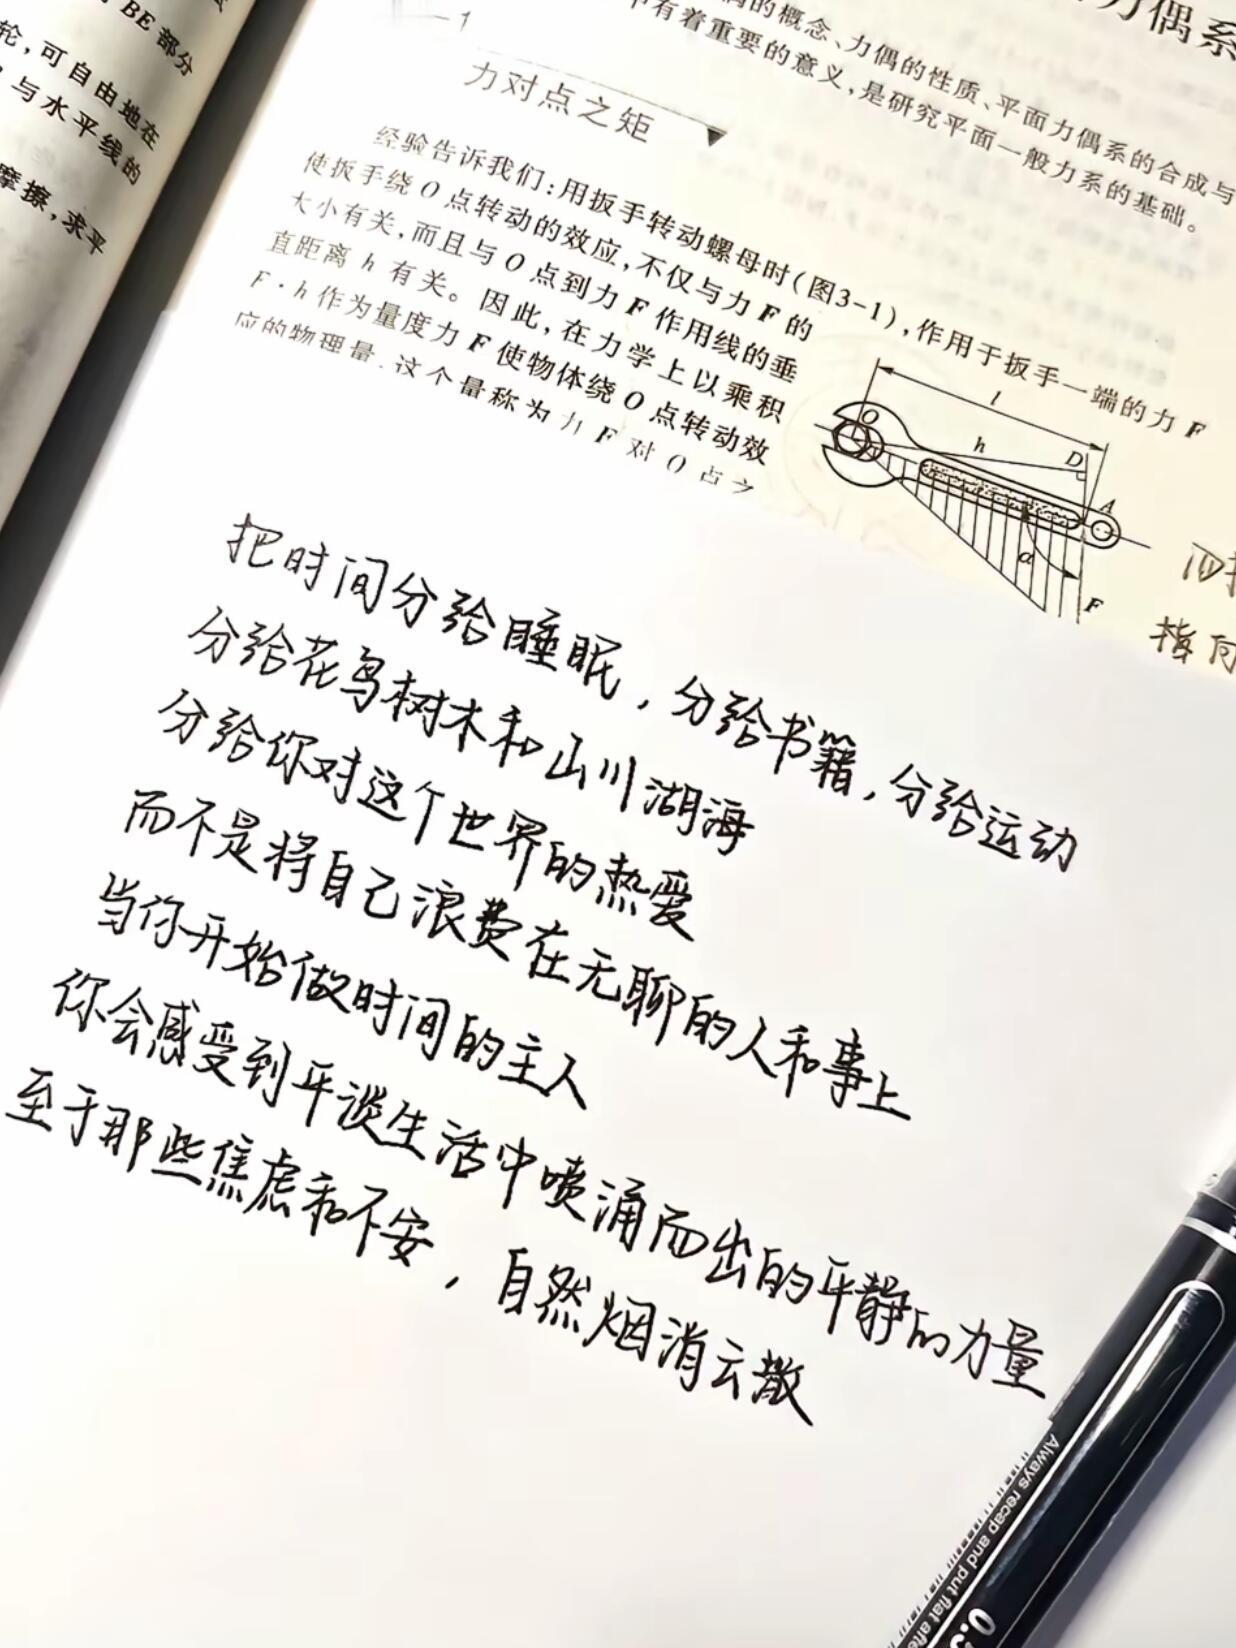 BE部分
轮，可自由地在
与水平线的
摩擦，求平
-1
力偶系
的概念、力偶的性质、平面力偶系的合成与
中有着重要的意义，是研究平面一般力系的基础。
力对点之矩
经验告诉我们：用扳手转动螺母时(图3-1)，作用于扳手一端的力F
使扳手绕O点转动的效应，不仅与力F的
大小有关，而且与O点到力F作用线的垂
直距离h有关。因此，在力学上以乘积
F·h作为量度力F使物体绕O点转动效
应的物理量，这个量称为力F对O点之
O
l
h
D
A
α
F
指向
把时间分给睡眠，分给书籍，分给运动
分给花鸟树木和山川湖海
分给你对这个世界的热爱
而不是将自己浪费在无聊的人和事上
当你开始做时间的主人
你会感受到平淡生活中喷涌而出的平静的力量
至于那些焦虑和不安，自然烟消云散
Always recap and put flat after
0.5